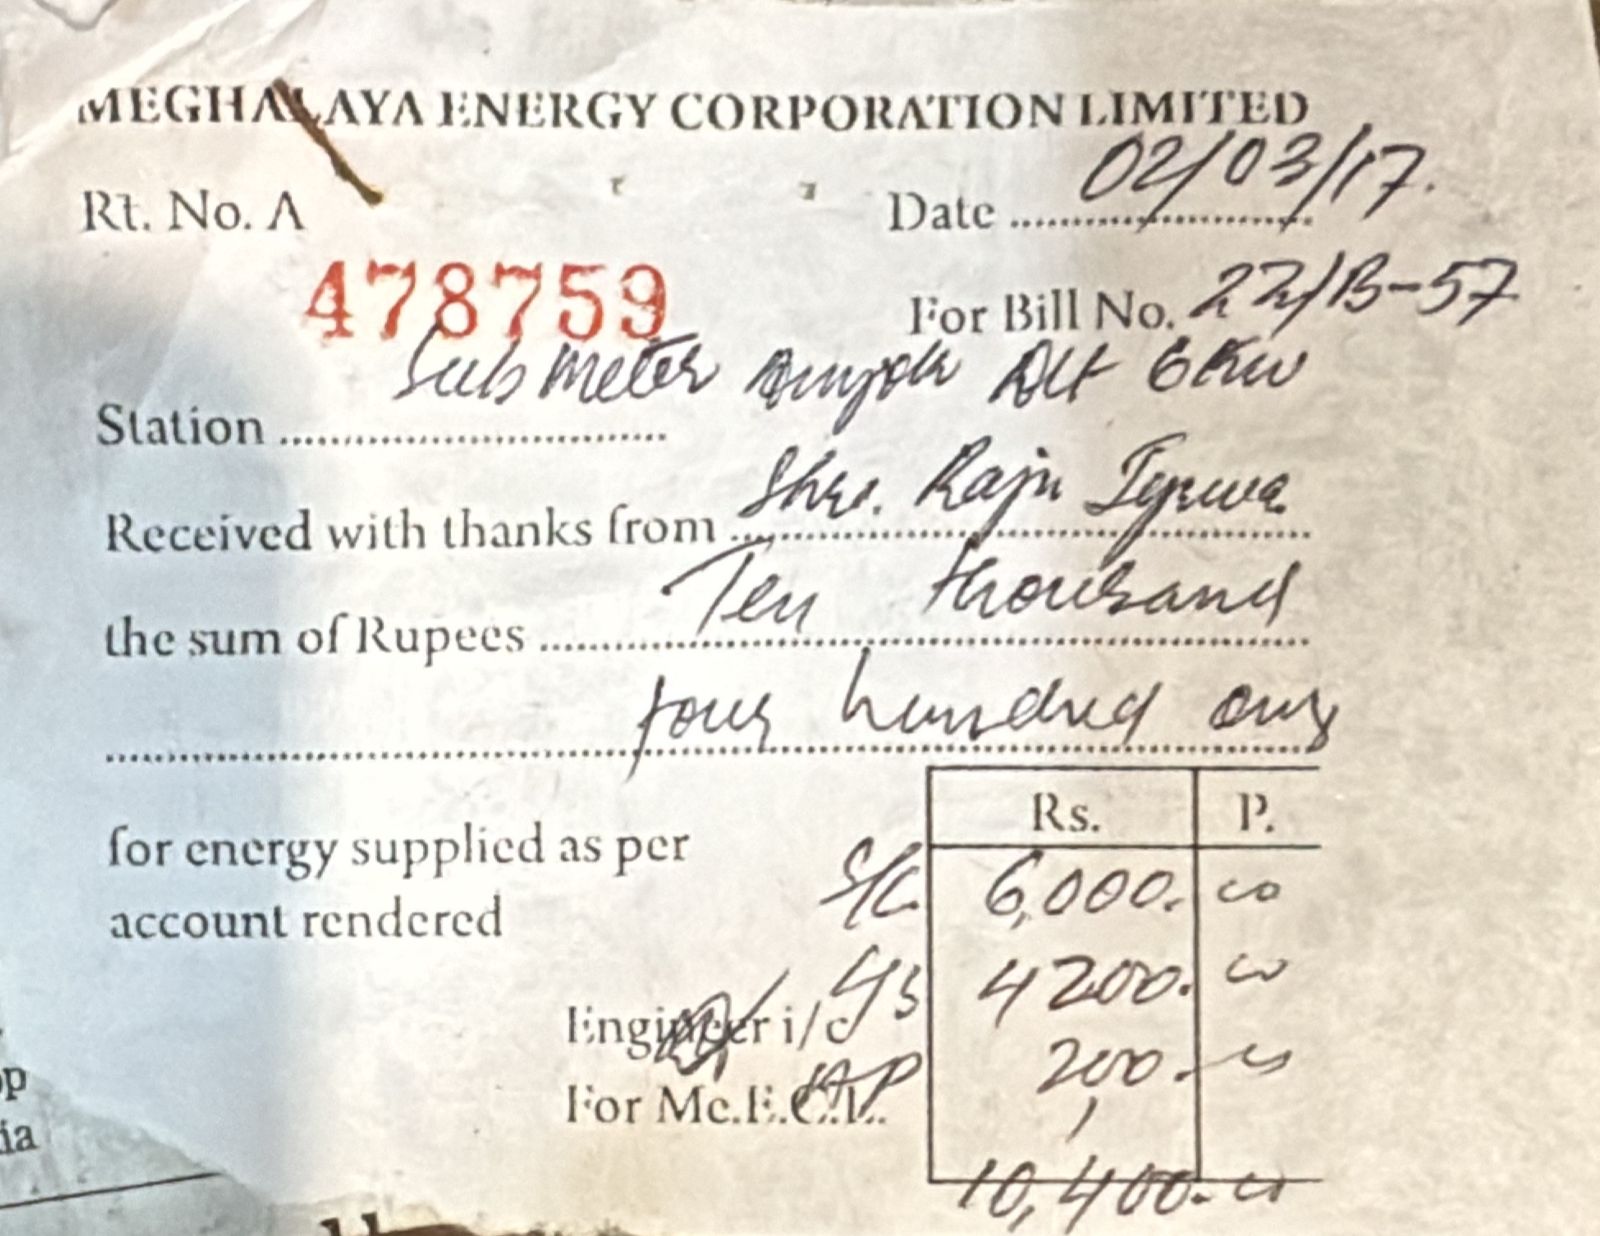 MEGHALAYA ENERGY CORPORATION LIMITED
Rt. No. A
Date 02/03/17.
478759
For Bill No. 22/B-57
Sub meter 6kw
Station
Received with thanks from Shri. Raju
the sum of Rupees Ten thousand
four hundred only
Rs. P.
for energy supplied as per
account rendered
S/C 6,000. 00
4200. 00
Engineer i/c
200. 00
For Me.E.C.L.
10,400. 00
op
ia